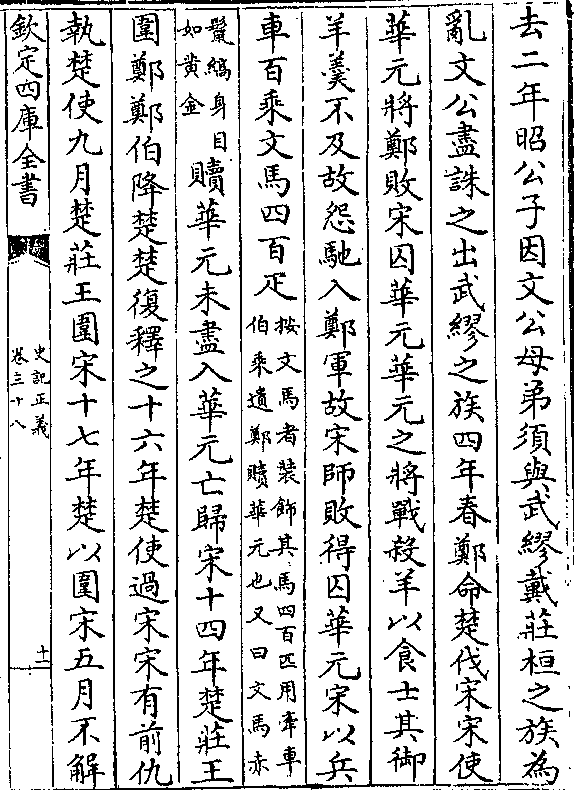 去二年昭公子因文公母弟須與武繆戴莊桓之族為
亂文公盡誅之出武繆之族四年春鄭命楚伐宋宋使
華元將鄭敗宋囚華元華元之將戰殺羊以食士其御
羊羹不及故怨馳入鄭軍故宋師敗得囚華元宋以兵
車百乘文馬四百疋
按文馬者裝飾其馬四百匹用牽車
伯乘遺鄭贖華元也又曰文馬赤
鬛縞身目
如黄金
贖華元未盡入華元亡歸宋十四年楚莊王
圍鄭鄭伯降楚楚復釋之十六年楚使過宋宋有前仇
執楚使九月楚莊王圍宋十七年楚以圍宋五月不解
欽定四庫全書
史記正義
卷三十八
十二